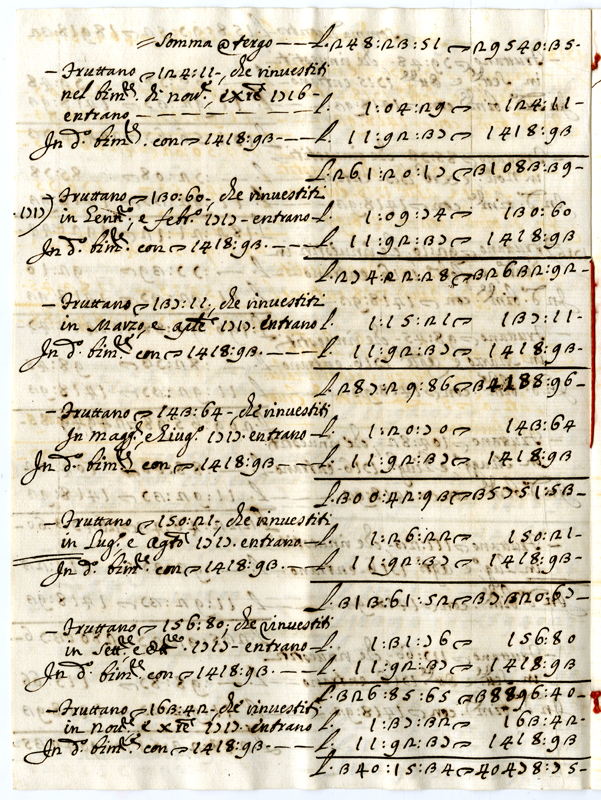 = Somma @ tergo —— L. 248:23:51 ∽ 29540:35-
- Fruttano ∽ 124:11-, che rinvestiti
nel bim.re di nov.e, e xre 1716-
entrano — — — — — — L. 1:04:29 ∽ 124:11-
In d.o bim.re con ∽ 1418:93 — — L. 11:92:37 ∽ 1418:93
L. 261:20:17 ∽ 31083:39-
- Fruttano ∽ 130:60-, che rinvestiti
1717) in Genn.o, e febr.o 1717- entrano — L. 1:09:74 ∽ 130:60
In d.o bim.re con ∽ 1418:93. — — L. 11:92:37 ∽ 1418:93
L. 274:22:28 ∽ 32632:92-
- Fruttano ∽ 137:11, che rinvestiti
in Marzo, e aprle 1717. entrano L. 1:15:21 ∽ 137:11-
In d.o bim.re con ∽ 1418:93. — — L. 11:92:37 ∽ 1418:93-
L. 287:29:86 ∽ 34188:96-
- Fruttano ∽ 143:64-, che rinvestiti
In magg.o, e Giug.o 1717. entrano — L. 1:20:70 ∽ 143:64
In d.o bim.re con ∽ 1418:93. — — L. 11:92:37 ∽ 1418:93
L. 300:42:93 ∽ 35751:53-
- Fruttano ∽ 150:21-, che rinvestiti
in Lug.o e Agto 1717. entrano — L. 1:26:22 ∽ 150:21-
In d.o bim.re con ∽ 1418:93. — — L. 11:92:37 ∽ 1418:93-
L. 313:61:52 ∽ 37320:67-
- Fruttano ∽ 156:80; che rinvestiti
in Sett.re e Ott.re 1717- entrano — L. 1:31:76 ∽ 156:80
In d.o bim.re con ∽ 1418:93 — — L. 11:92:37 ∽ 1418:93
L. 326:85:65 ∽ 38896:40-
- Fruttano ∽ 163:42-, che rinvestiti
in Nov.re e xre 1717. entrano L. 1:37:32 ∽ 163:42-
In d.o bim.re con ∽ 1418:93 — — L. 11:92:37 ∽ 1418:93
L. 340:15:34 ∽ 40478:75-